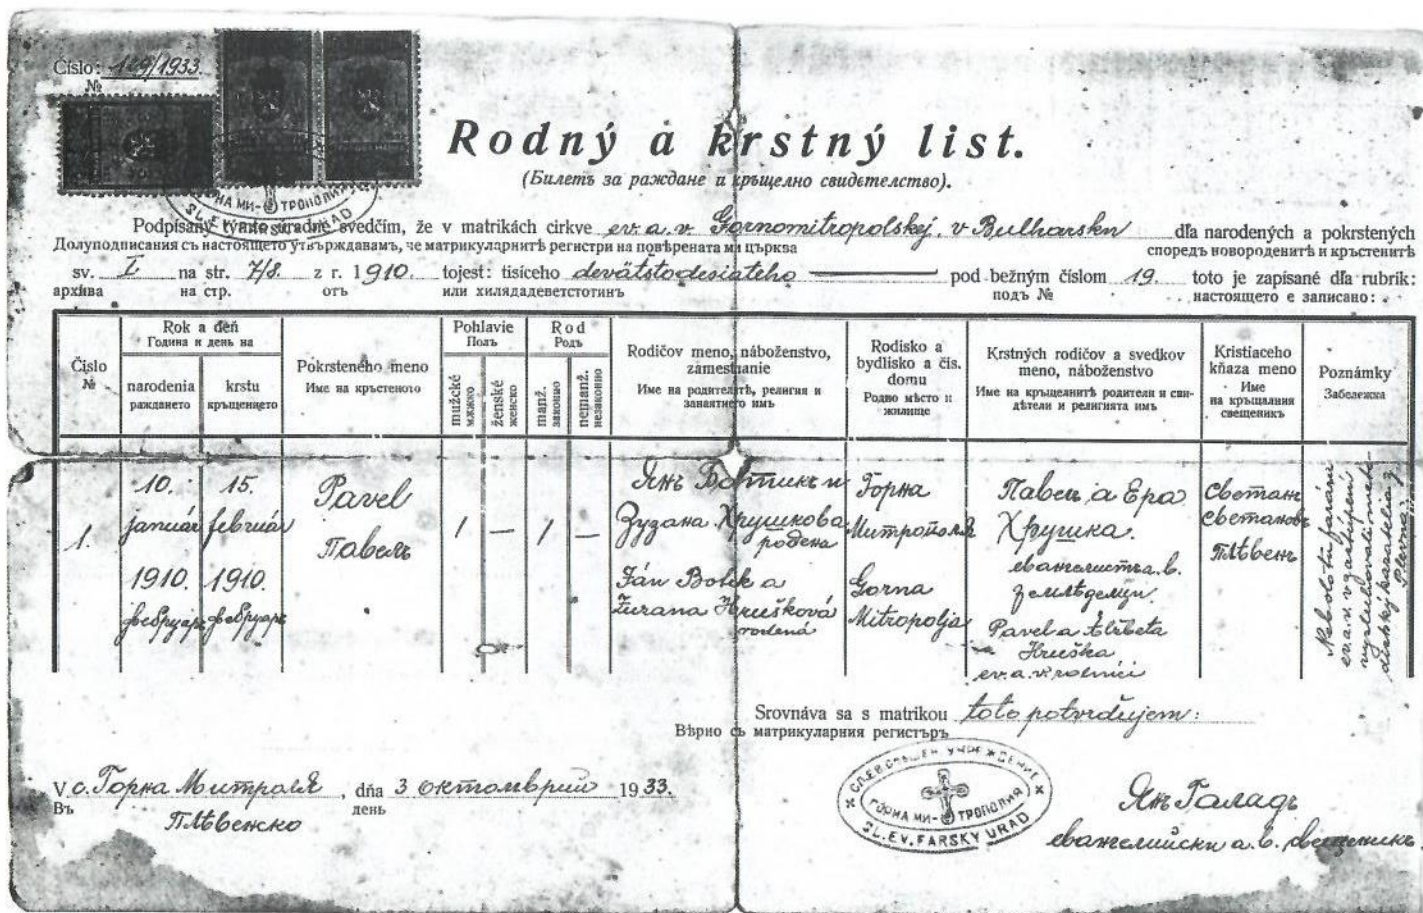 Číslo: 119/1933.
№
Rodný a krstný list.
(Билетъ за раждане и кръщелно свидетелство).
ГОРНА МИТРОПОЛИЯ
SL. EV. FARSKY URAD
Podpísaný týmto úradne svedčím, že v matrikách cirkve ev. a. v. Gornomitropolskej, v Bulharsku dľa narodených a pokrstených
Долуподписания съ настоящето утвърждавамъ, че матрикуларнитѣ регистри на повѣрената ми църква споредъ новороденитѣ и кръстенитѣ
sv. I. na str. 7/8. z r. 1910. tojest: tisíceho devätstodesiateho pod bežným číslom 19. toto je zapísané dľa rubrik:
архива на стр. отъ или хилядадеветстотинъ подъ № настоящето е записано:
Číslo
№
Rok a deň
Година и день на
narodenia
раждането
krstu
кръщението
Pokrsteného meno
Име на кръстеното
Pohlavie
Полъ
mužcké
мжжко
ženské
женско
Rod
Родъ
manž.
законно
nemanž.
незаконно
Rodičov meno, náboženstvo,
zámestnanie
Име на родителѣ, религия и
занаятието имъ
Rodisko a
bydlisko a čis.
domu
Родно мѣсто и
жилище
Krstných rodičov a svedkov
meno, náboženstvo
Име на кръщелнитѣ родители и сви-
дѣтели и религията имъ
Kristiaceho
kňaza meno
Име
на кръщалния
свещеникъ
Poznámky
Забележка
1.
10.
január
1910.
фебруаръ
15.
február
1910.
фебруаръ
Pavel
Павелъ
1 — 1 —
Янъ Ботикъ и
Зузана Хрушкова
родена
Ján Botík a
Zuzana Hrušková
rodená
Горна
Митрополя
Gorna
Mitropolja
Павел а Ера
Хрушка.
евангелисти а. в.
земледелци.
Pavel a Alžbeta
Hruška
ev. a. v. rolníci
Светан
Светановъ
Плѣвенъ
Nebolo tu farára
ev. a. v. v zastúpení
Plevna
Srovnáva sa s matrikou toto potvrdzujem:
Вѣрно съ матрикуларния регистъръ
V o. Горна Митрополя, dňa 3 октомврий 1933.
Въ Плѣвенско день
ГОРНА МИТРОПОЛИЯ
SL. EV. FARSKY URAD
Янъ Галадъ
евангелийски а. в. свещеникъ.